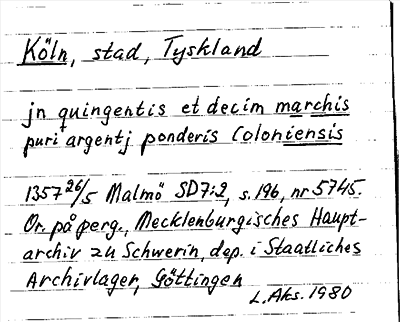 Köln, stad, Tyskland
jn quingentis et decim marchis
puri argentj ponderis Coloniensis
1357 26/5 Malmö SD7:2, s. 196, nr 5745.
Or. på perg., Mecklenburgisches Haupt-
archiv zu Schwerin, dep. i Staatliches
Archivlager, Göttingen
L. Aks. 1980